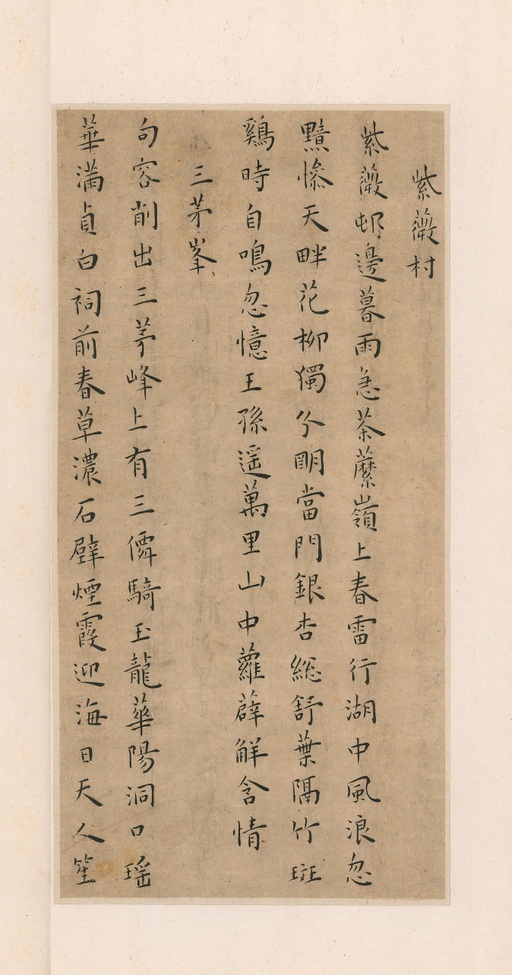 紫薇村
紫薇邨邊暮雨急茶蘼嶺上春雷行湖中風浪忽
黯慘天畔花柳獨分明當門銀杏總舒葉隔竹斑
鷄時自鳴忽憶王孫遥萬里山中蘿薜解含情
三茅峯
句容削出三茅峰上有三僊騎玉龍華陽洞口瑶
華滿貞白祠前春草濃石壁煙霞迎海日天人笙